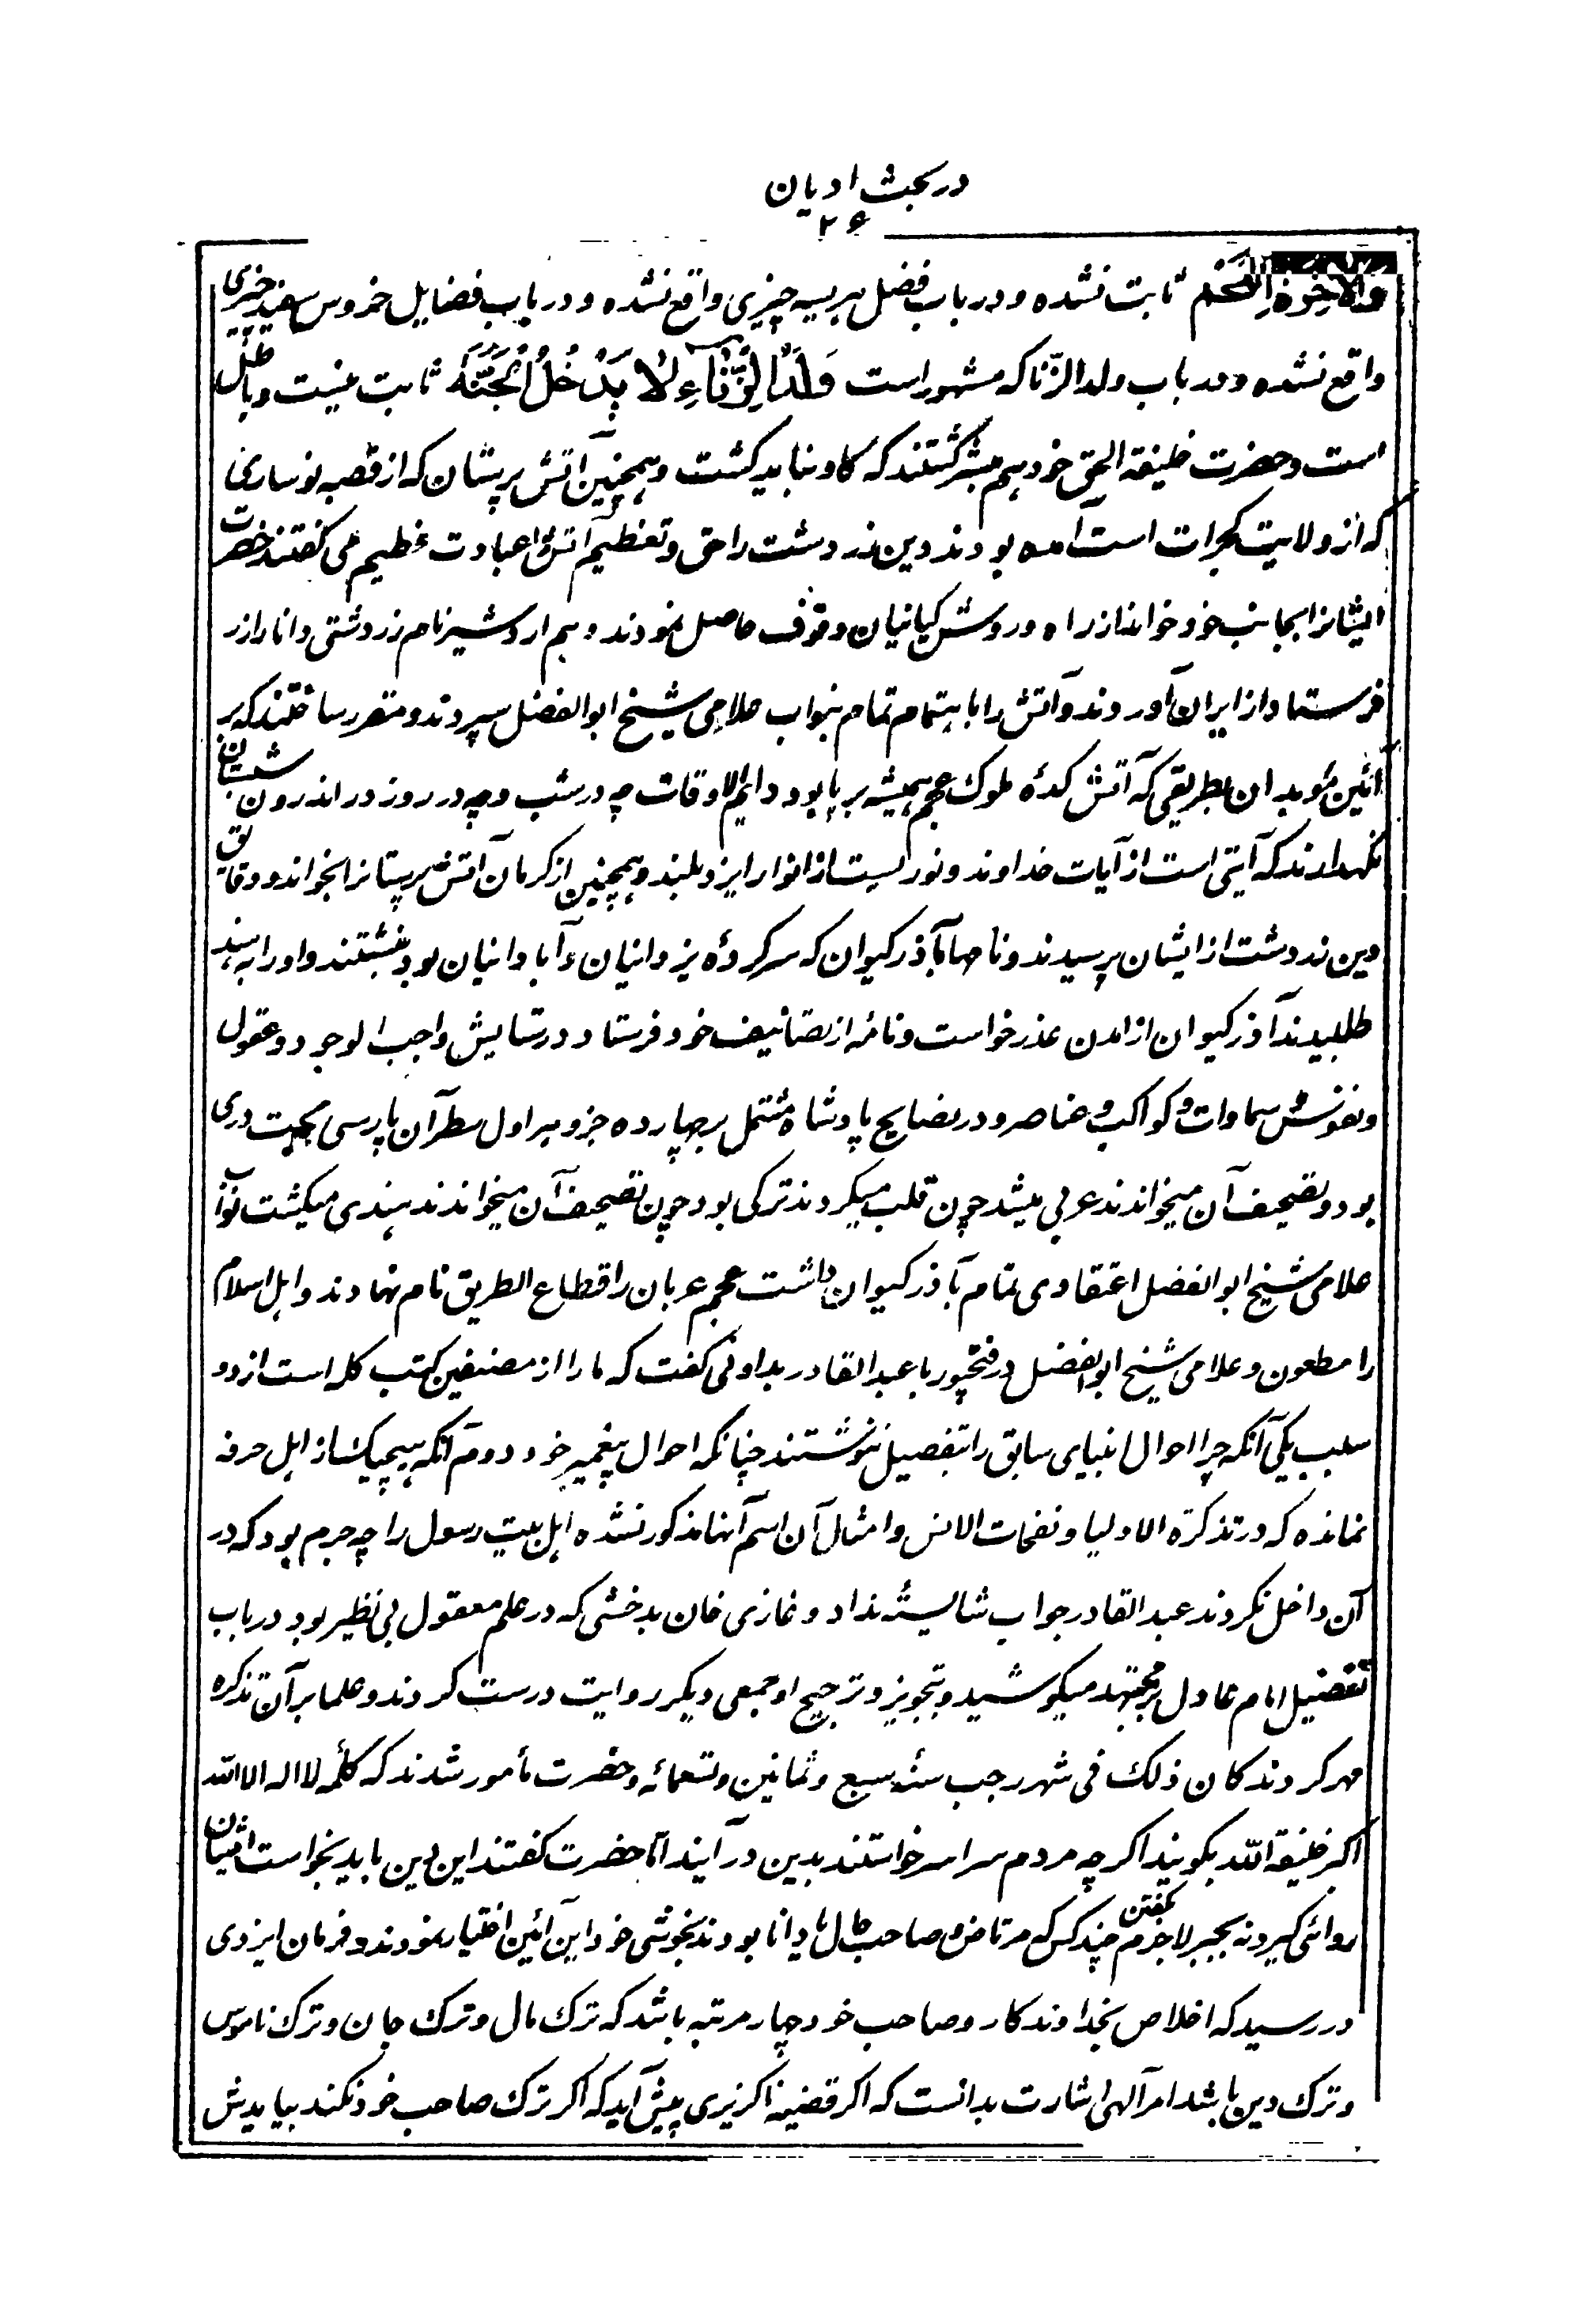 در بحث ادیان
۲۶
والآخرة اللحم ثابت نشده و در باب فضل هریسه چیزی واقع نشده و در باب فضایل خروس سفید چیزی
واقع نشده و در باب ولد الزّنا که مشهور است وَلَدُ الزِّنَاءِ لَا يَدْخُلُ الْجَنَّةَ ثابت نیست و باطل
است و حضرت خلیفة الحق خود هم مبشر گشتند که گاو نباید کشت و همچنین آتش پرستان که از قصبه نوساری
که از ولایت گجرات است آمده بودند دین زردشت را حق و تعظیم آتش را عبادت عظیم می گفتند حضرت
ایشانرا بجانب خود خواند از راه و روش کیانیان وقوف حاصل نمودند و هم اردشیر نام زردشتی دانا را زر
فرستاد از ایران آوردند و آتش را باهتمام تمام بنواب علامی شیخ ابوالفضل سپردند و مقرر ساختند که بر
آئین مؤبدان بطریقی که آتش کدهٔ ملوک عجم همیشه برپا بود دایم الاوقات چه در شب و چه در روز در اندرون شبستان
نگهدارند که آیتی است از آیات خداوند و نوریست از انوار ایزد بلند و همچنین از کرمان آتش پرستانرا بخواند و دقایق
دین زردشت از ایشان پرسیدند و نامها بآذر کیوان که سرکردهٔ یزدانیان و آبادانیان بود نبشتند و او را به هند
طلبیدند آذر کیوان از آمدن عذر خواست و نامهٔ از تصانیف خود فرستاد در ستایش واجب الوجود و عقول
و نفوس و سماوات و کواکب و عناصر و در نصایح پادشاه مشتمل بر چهارده جزو هر اول سطر آن پارسی بحت دری
بود و تصحیف آن میخواندند عربی میشد چون قلب میکردند ترکی بود چون تصحیف آن میخواندند هندی میگشت نواب
علامی شیخ ابوالفضل اعتقادی تمام بآذر کیوان داشت عجم عربان را قطاع الطریق نام نهادند و اهل اسلام
را مطعون و علامی شیخ ابوالفضل در فتحپور با عبدالقادر بداونی گفت که ما را از مصنفین کتب گله است از دو
سبب یکی آنکه چرا احوال انبیای سابق را بتفصیل ننوشتند چنانکه احوال پیغمبر خود دوم آنکه هیچیک از اهل حرفه
نمانده که در تذکرة الاولیا و نفحات الانس و امثال آن اسم آنها مذکور نشده اهل بیت رسول را چه جرم بود که در
آن داخل نکردند عبدالقادر جواب شایسته نداد و غازی خان بدخشی که در علم معقول بی نظیر بود در باب
تفضیل امام عادل بر مجتهد میکوشید و بتجویز و ترجیح او جمعی دیگر روایت درست کردند و علما بر آن تذکره
مهر کردند کان ذلک فی شهر رجب سنه سبع و ثمانین و تسعمائه و حضرت مأمور شدند که کلمهٔ لا اله الا الله
اکبر خلیفة الله بگویند اگرچه مردم سراسر خواستند بدین درآیند اما حضرت گفتند این دین باید بخواست ایشان
روائی گیرد نه بجبر لاجرم بگفتن چند کس که مرتاض و صاحب حال یا دانا بودند بخوشی خود این آئین اختیار نمودند و فرمان ایزدی
در رسید که اخلاص بخداوندکار و صاحب خود چهار مرتبه باشد که ترک مال و ترک جان و ترک ناموس
و ترک دین باشد امر آلهی اشارت بدانست که اگر قضیهٔ ناگزیری پیش آید که اگر ترک صاحب خود نکند بیایدش